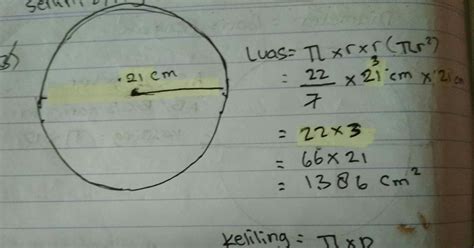 3)
21 cm
Luas = π x r x r (πr²)
= 22/7 x 21 3 cm x 21 cm
= 22 x 3
= 66 x 21
= 1386 cm²
Keliling = π x D